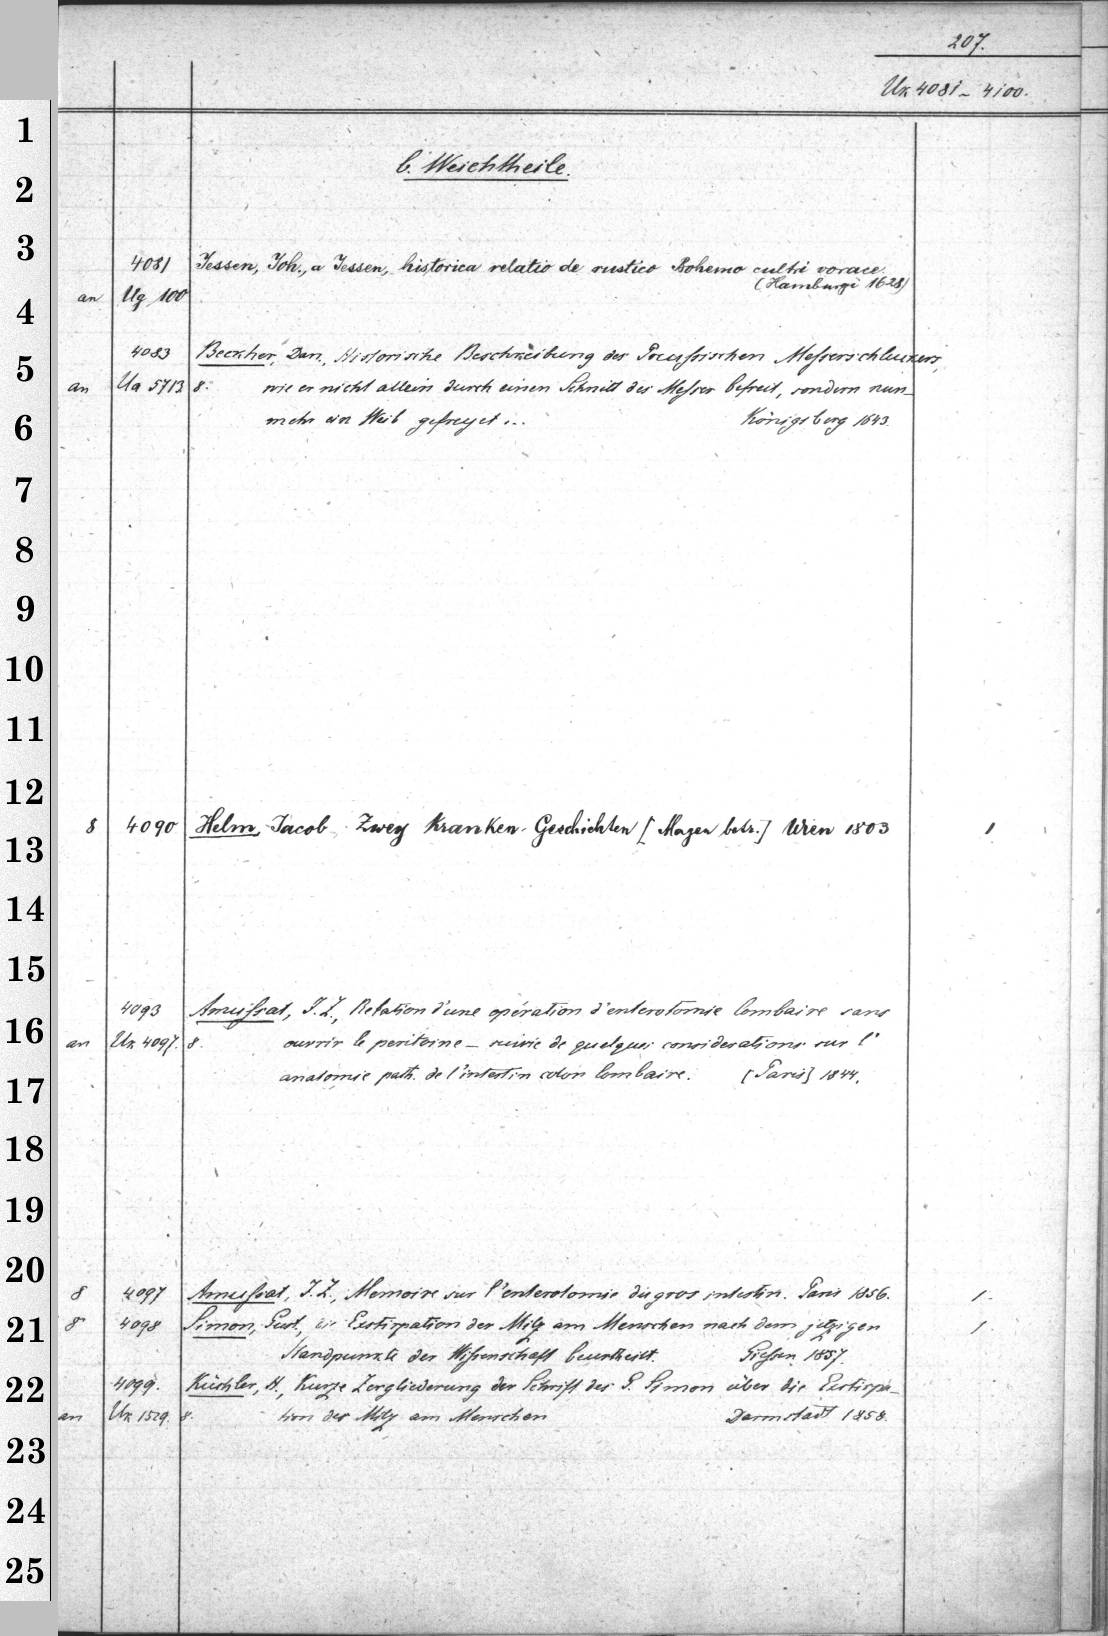 207.
Uk 4081 – 4100.
1
b. Weichtheile.
2
3
4081 Jessen, Joh., a Jessen, historica relatio de rustico Bohemo cultri vorace.
(Hamburgi 1628)
an Ug 100
4
4083 Beckher, Dan., Historische Beschreibung des Preussischen Messerschluckers,
5
an Ua 5713 8. wie er nicht allein durch einen Schnitt des Messer befreit, sondern nun-
6
mehr ein Weib gefreyet ... Königsberg 1643.
7
8
9
10
11
12
8 4090 Helm, Jacob Zwey Kranken-Geschichten [Magen betr.] Wien 1803 1
13
14
15
4093 Amussat, J. Z., Relation d'une opération d'enterotomie lombaire sans
16
an Uk 4097. 8. ouvrir le peritoine – suivie de quelques considerations sur l'
anatomie path. de l'intestin colon lombaire. [Paris] 1844.
17
18
19
20
8 4097 Amussat, J. Z., Memoire sur l'enterotomie du gros intestin. Paris 1856. 1.
21
8 4098 Simon, Gust., die Exstirpation der Milz am Menschen nach dem jetzigen 1.
Standpunkte der Wissenschaft beurtheilt. Giessen 1857.
22
4099. Küchler, H., Kurze Zergliederung der Schrift des G. Simon über die Exstirpa-
an Uk 1529. 8. tion der Milz am Menschen Darmstadt 1858.
23
24
25